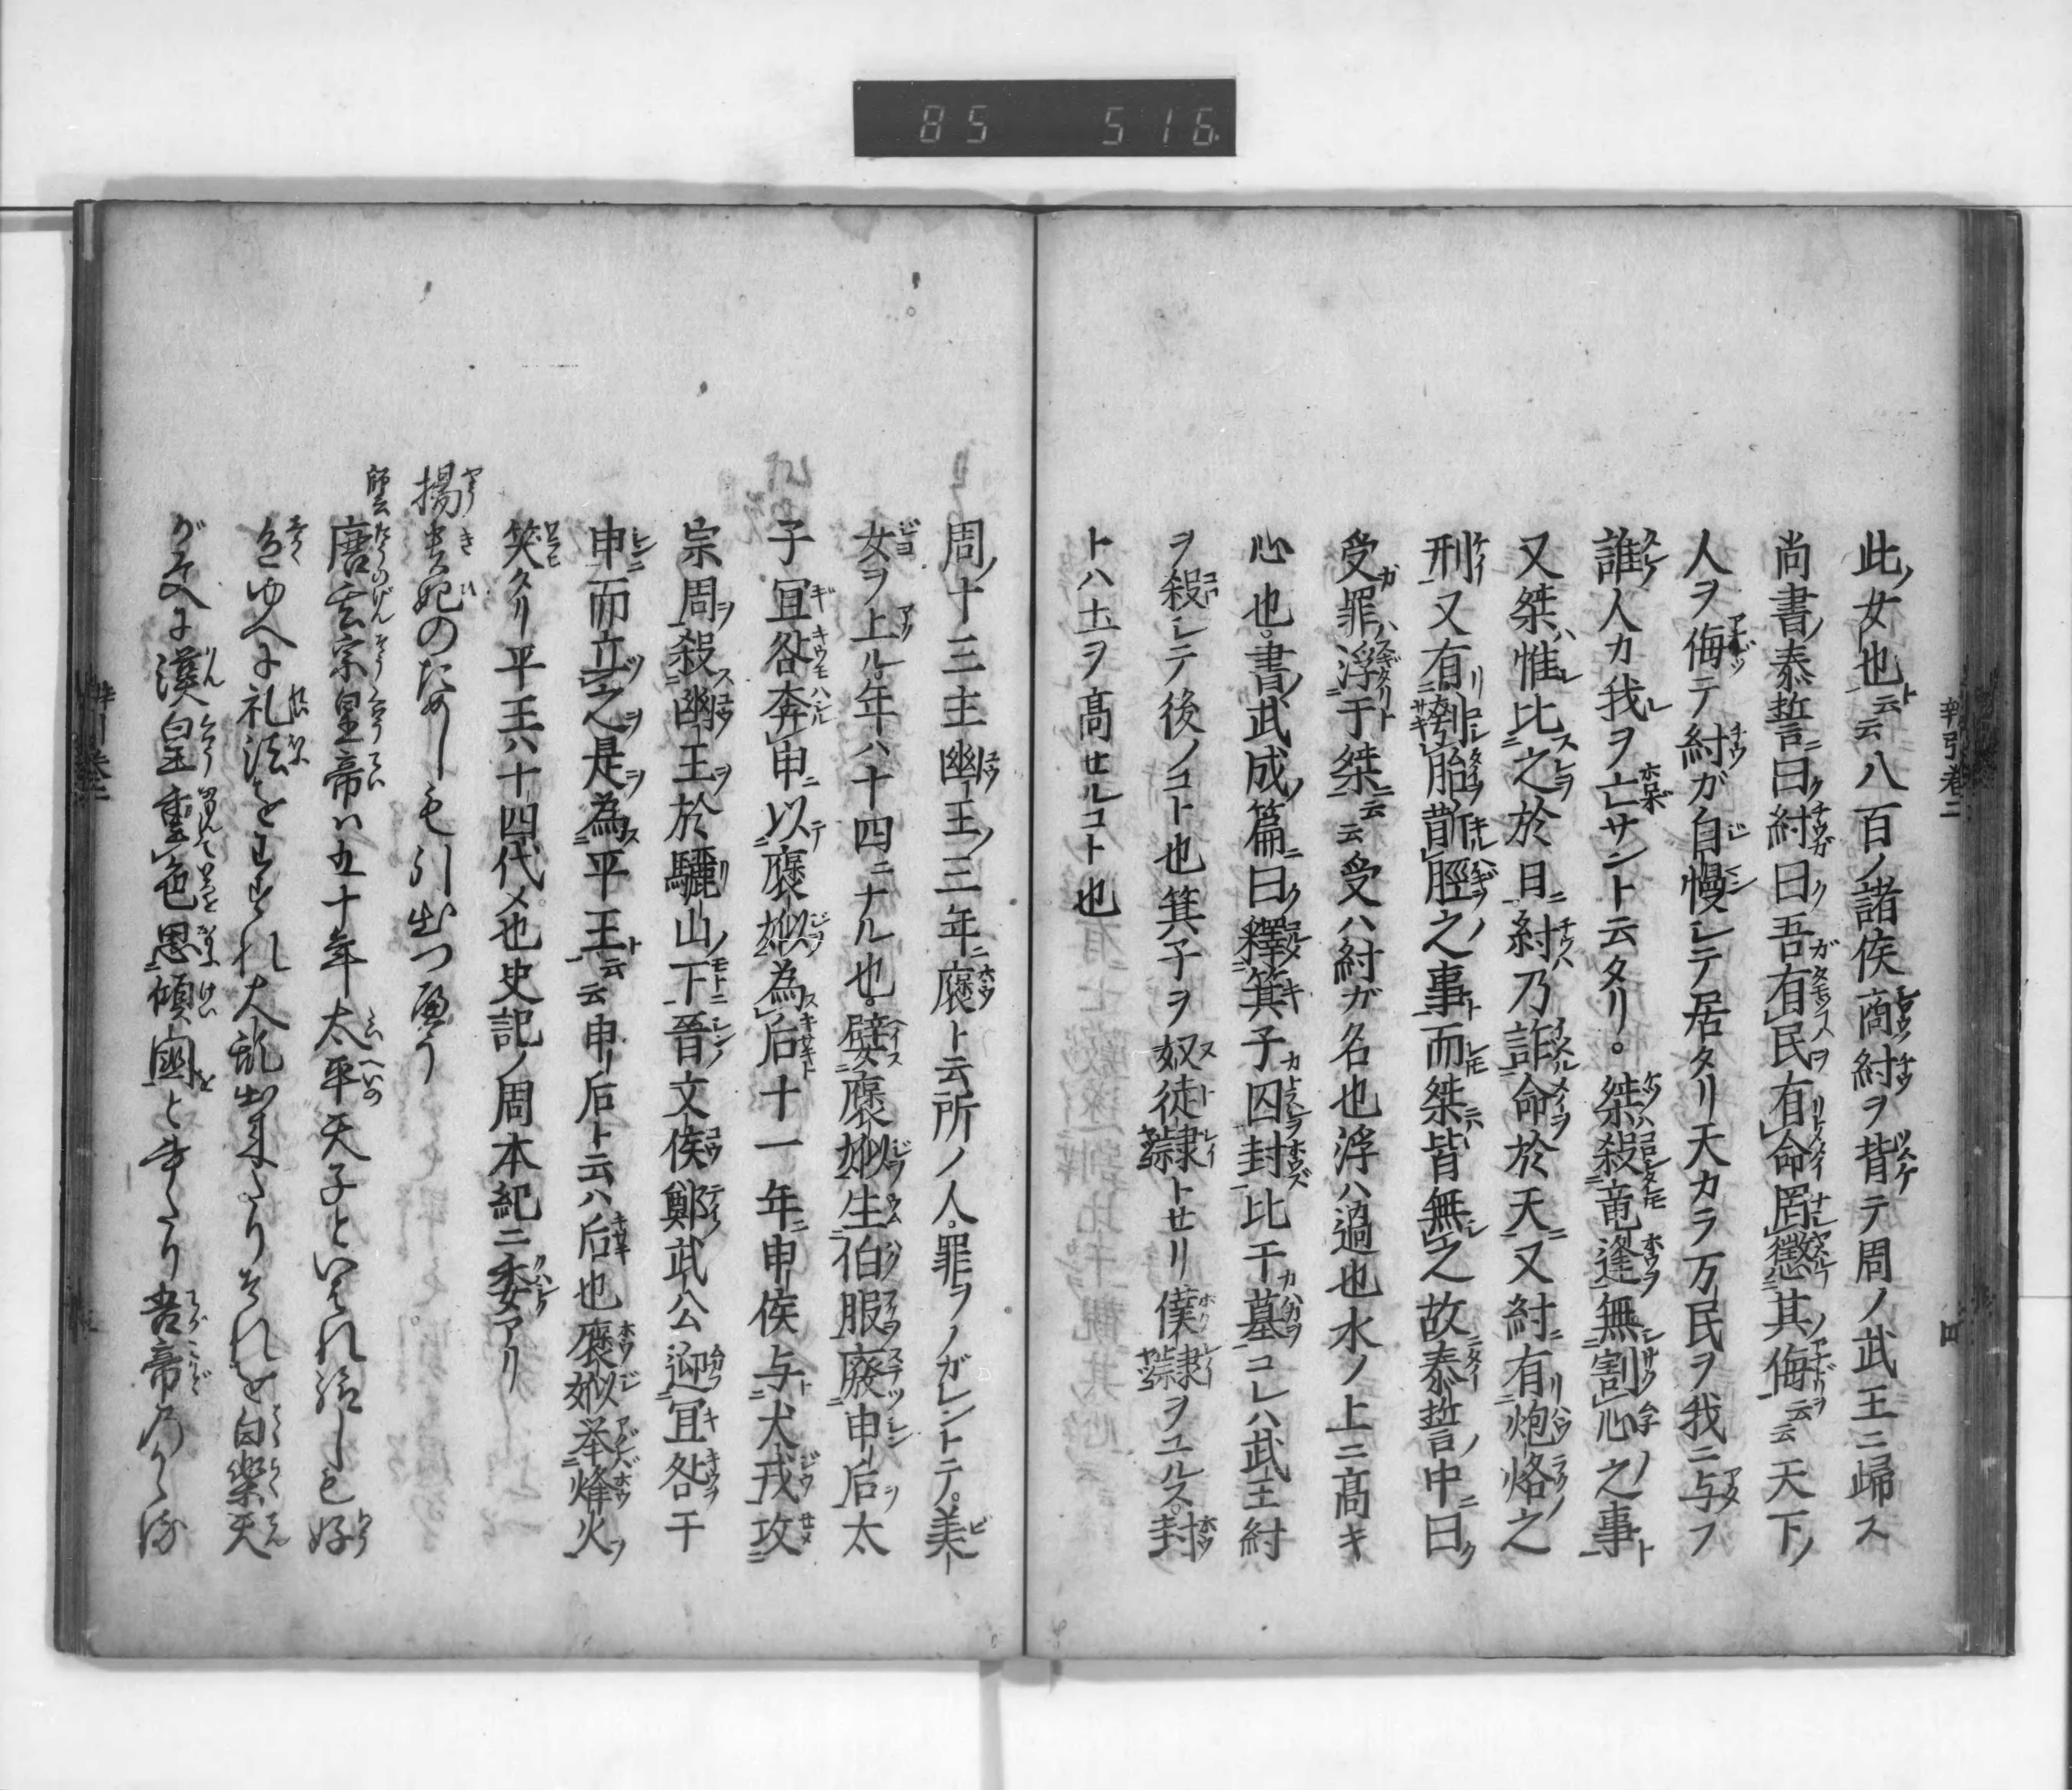 85 516
此女也云云八百ノ諸侯商紂ヲ背テ周ノ武王ニ歸ス
尚書泰誓曰紂曰吾有民有命罔懲其侮云云天下ノ
人ヲ侮テ紂ガ自慢シテ居タリ天カラ万民ヲ我ニ与フ
誰人カ我ヲ亡サント云タリ。桀殺竜逢無割心之事
又桀惟比之於日紂乃詐命於天又紂有炮烙之
刑又有刳胎斮脛之事而桀皆無之故泰誓中曰
受罪浮于桀云云受ハ紂ガ名也浮ハ過也水ノ上ニ高キ
心也。書武成篇曰釋箕子囚封比干墓コレハ武王紂
ヲ殺シテ後ノコト也箕子ヲ奴徒隷トセリ僕隷ヲユルス。封
トハ土ヲ高セルコト也
周ノ十三主幽王ノ三年ニ褒ト云所ノ人。罪ヲノガレントテ。美
女ヲ上ル年ハ十四ニナル也。嬖褒姒生伯服廢申后太
子宜咎奔申以褒姒為后十一年申侯与犬戎攻
宗周殺幽王於驪山下晉文侯鄭武公迎宜咎于
申而立之是為平王云云申后ト云ハ后也褒姒挙烽火
笑タリ平王ハ十四代メ也史記ノ周本紀ニ委アリ
楊貴妃のためしも引出つへう
唐玄宗皇帝ハ五十年太平天子といはれ給しも好
色ゆへに礼法をわすれ大乱出来たりそれを白楽天
が漢皇重色思傾國と